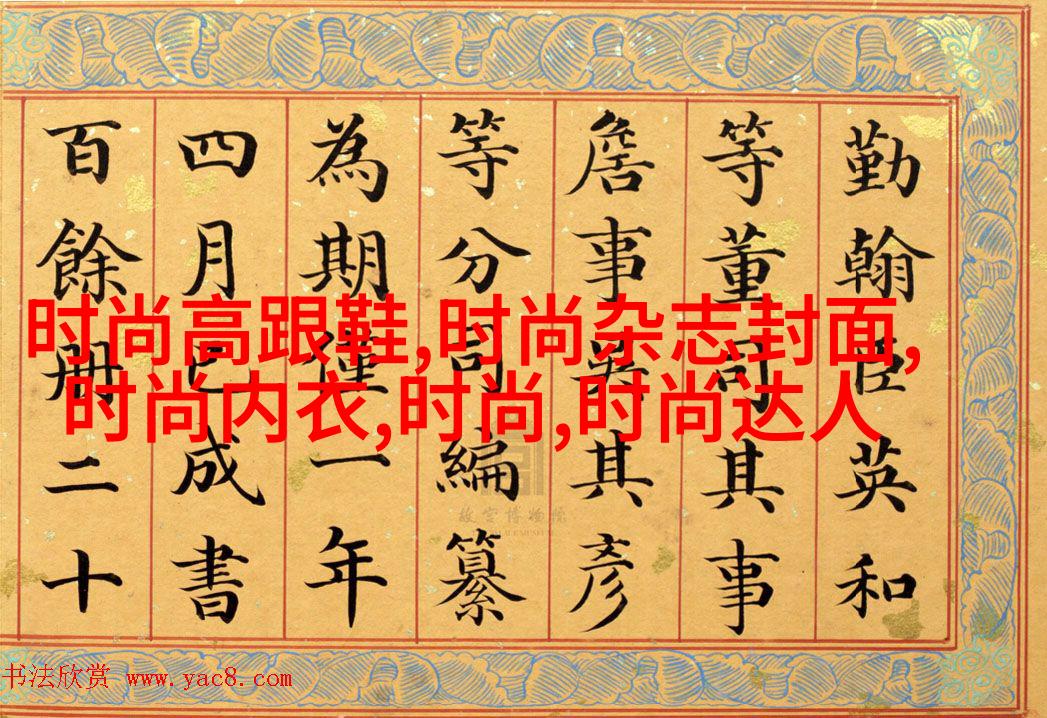 勤翰臣英和
等董司其事
詹事吳其彥
等分司編纂
為期僅一年
四月已成書
百餘册二十
时尚高跟鞋,时尚杂志封面,
时尚内衣,时尚,时尚达人
故宫博物院
书法欣赏 www.yac8.com